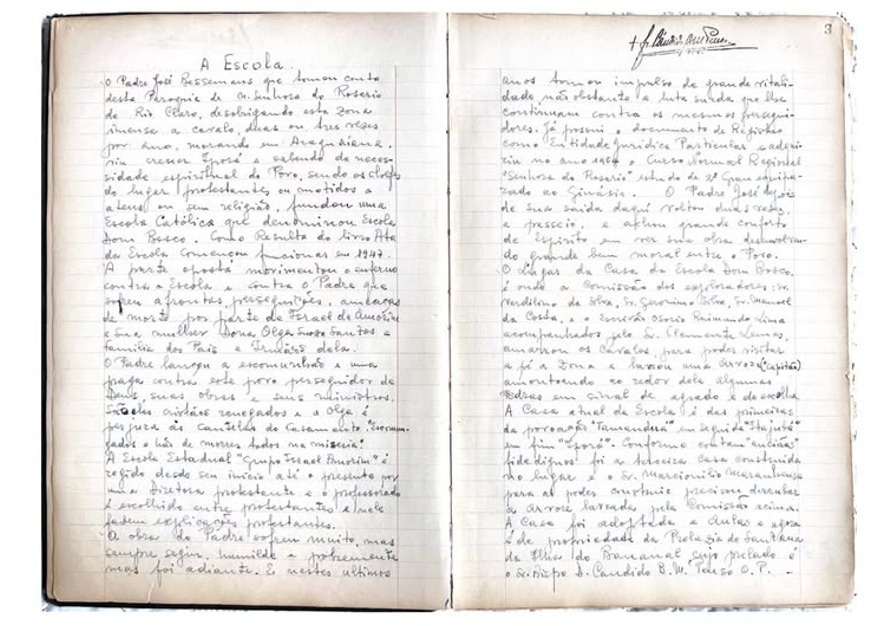 A Escola.
O Padre José Ressemans que tomou conta
desta Paroquia de N. Senhora do Rosario
de Rio Claro, desobrigando esta zona
imensa a cavalo, duas ou tres vezes
por ano, morando em Araguaiana,
viu crescer Iporá e sabendo da neces-
sidade espiritual do Povo, sendo os chefes
do lugar protestantes ou metidos a
ateus ou sem religião, fundou uma
Escola Católica que denominou Escola
Dom Bosco. Como Resulta do livro Ata
da Escola começou funcionar em 1947.
A parte oposta movimentou o inferno
contra a Escola e contra o Padre que
sofreu afrontas, perseguições, ameaças
de morte por parte de Israel de Amorim
e Sua mulher Dona Olga Santos e
familia dos Pais e Irmãos dela.
O Padre lançou a escomunhão e uma
praga contra este povo perseguidor de
Deus, suas obras e seus ministros.
São eles cristãos renegados e a Olga é
perjura às cautelas do Casamento. "Escomun-
gados e hás de morrer todos na miseria".
A Escola Estadual "Grupo Israel Amorim" é
regido desde seu inicio até o presente por
uma Diretora protestante e o professorado
é escolhido entre protestantes e nele
fazem explicações protestantes.
A obra do Padre sofreu muito, mas
sempre seguiu humilde e pobremente
mas foi adiante. E nestes ultimos
3
anos tomou impulso de grande vitali-
dade não obstante a luta surda que lhe
continuam contra os mesmos persegui-
dores. Já possui o documento de Registro
como Entidade Juridica Particular e adqui-
riu no ano o Curso Normal Regional
"Senhora do Rosario" estudo de 2º Grau equipa-
rado ao Ginásio. O Padre José depois
de sua saida daqui voltou duas vezes,
a passeio, e achou grande conforto
de Espirito em ver sua obra desenvolven-
do grande bem moral entre o Povo.
O Lugar da Casa da Escola Dom Bosco,
é onde a Comissão dos exploradores: Sr.
Verdilino da Silva, Sr. Geronimo Silva, Sr. Manoel
da Costa, e o Escrivão Osorio Raimundo Lima
acompanhados pelo Sr. Clemente Lemos,
amarrou os cavalos, para poder visitar
a pé a Zona e lavrou uma arvore (Capitão)
amontoando ao redor dela algumas
Pedras em sinal de agrado e de escolha
A Casa atual da Escola é das primeiras
da povoação "Tamanduá" em seguida "Itajubá"
em fim "Iporá". Conforme contam anciãos
fidedignos foi a terceira casa construida
no lugar e o Sr. Marcionilio Maranhense
para a poder construir precisou derrubar
a arvore lavrada pela Comissão acima.
A Casa foi adoptada a Aulas e agora
é de propriedade da Prelazia de Santana
da Ilha do Bananal cujo prelado é
o Sr. Bispo D. Candido B. M. Penso O. P. -